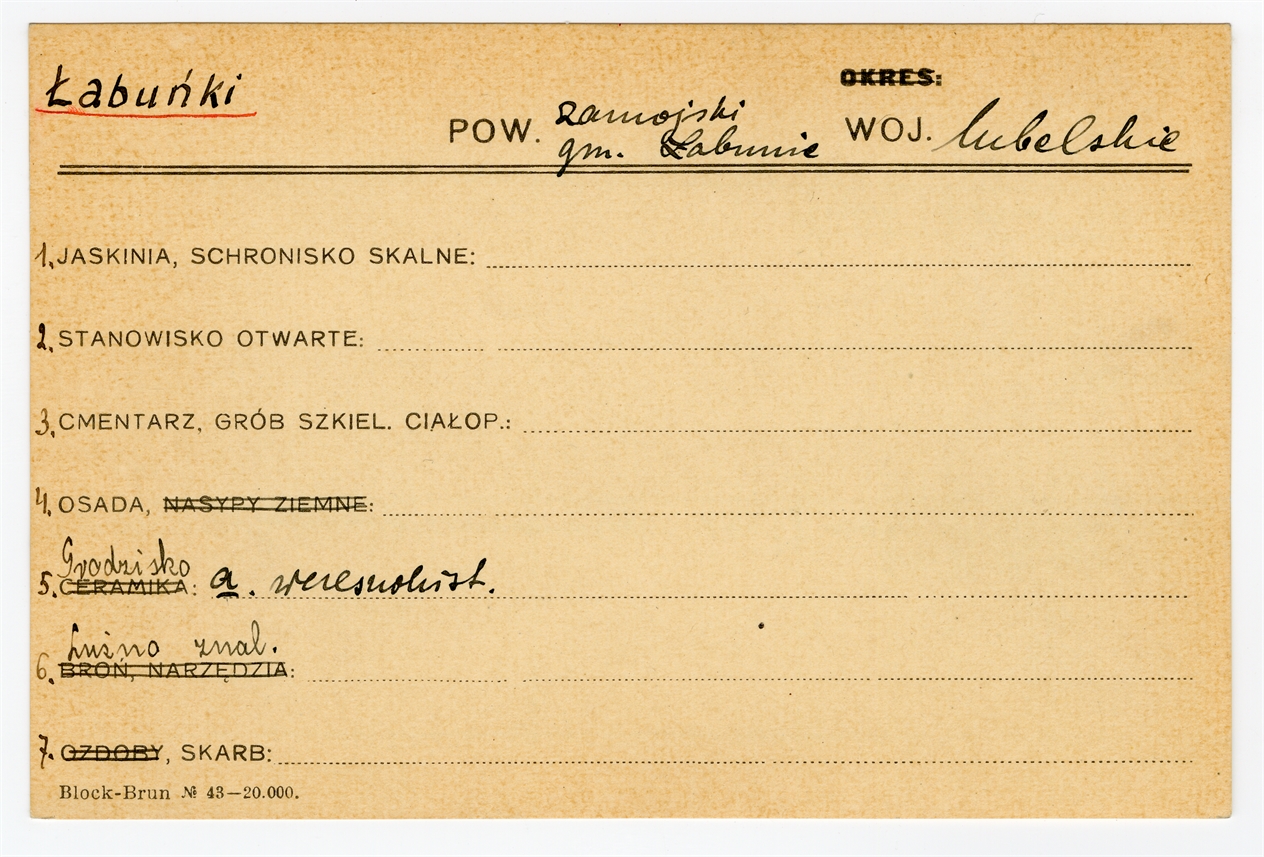 Łabuńki
OKRES:
POW. zamojski WOJ. lubelskie
gm. Łabunie
1. JASKINIA, SCHRONISKO SKALNE:
2. STANOWISKO OTWARTE:
3. CMENTARZ, GRÓB SZKIEL. CIAŁOP.:
4. OSADA, NASYPY ZIEMNE:
Grodzisko
5. CERAMIKA: a. wczesnohist.
Luźno znal.
6. BROŃ, NARZĘDZIA:
7. OZDOBY, SKARB:
Block-Brun № 43—20.000.